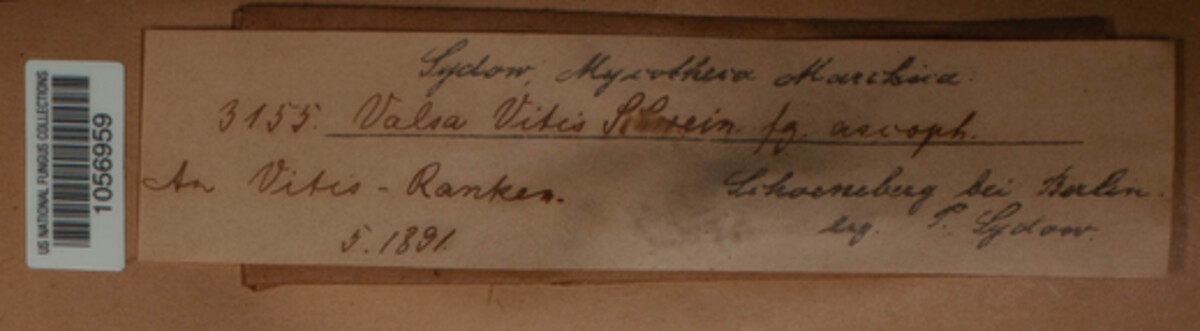 US NATIONAL FUNGUS COLLECTIONS
1056959
Sydow, Mycotheca Marchica.
3155. Valsa Vitis Schwein. fg. ascoph.
An Vitis-Ranken.
Schoeneberg bei Berlin.
5.1891.
leg. P. Sydow.